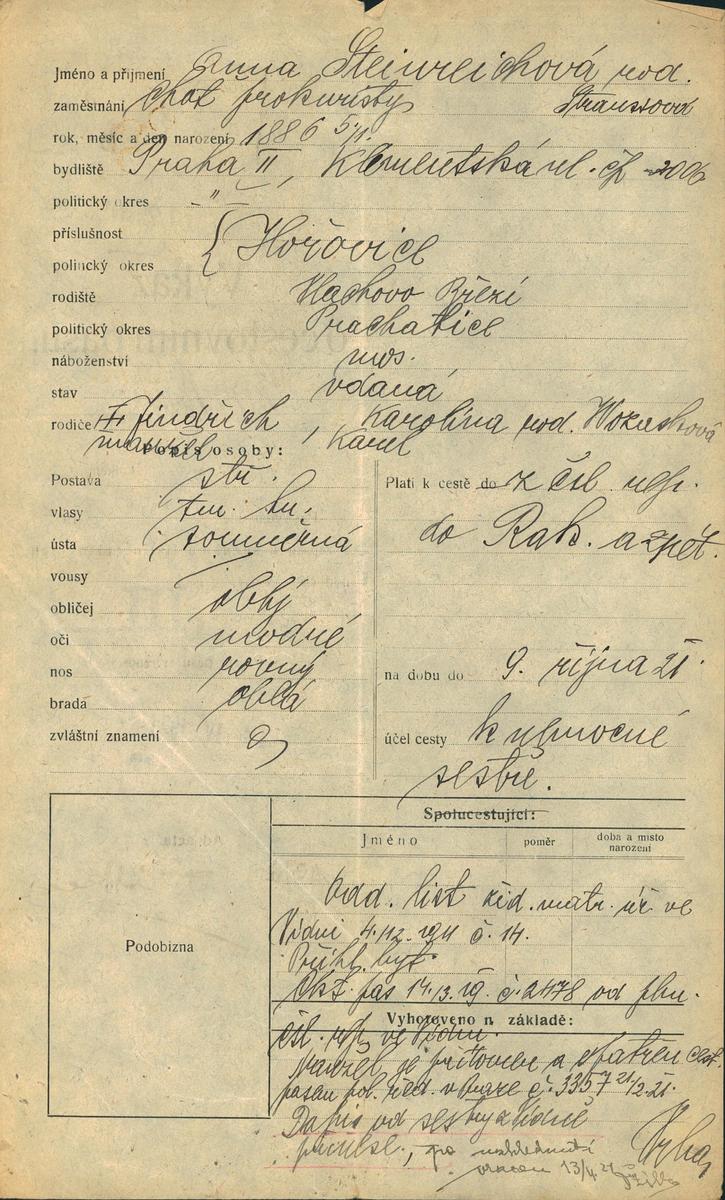 Jméno a příjmení Anna Steinreichová rod.
zaměstnání choť prokuristy Straussová
rok, měsíc a den narození 1886 5/11.
bydliště Praha II, Klimentská ul. čp. 2006
politický okres - " -
příslušnost
politický okres { Hořovice
rodiště Vlachovo Březí
politický okres Prachatice
náboženství mos.
stav vdaná
rodiče † Jindřich, Karolina rod. Wokatschová
manžel Karel
Popis osoby:
Postava stř.
vlasy tm. hn.
ústa souměrná
vousy /
obličej oblý
oči modré
nos rovný
brada oblá
zvláštní znamení 0
Platí k cestě do z čsl. rep.
do Rak. a zpět.
na dobu do 9. října 21.
účel cesty k nemocné
sestře.
Spolucestující:
Jméno poměr doba a místo narození
Odd. list žid. matr. úř. ve
Vídni 4./12. 1911 č. 14.
Přihl. byt.
čkš. pas 14./3. 19. č. 2478 od plnr.
Vyhotoveno n základě:
čsl. rep. ve Vídni.
Manžel je přítomen a opatřen cest.
pasem pol. řed. v Praze č. 3357 21/2. 21.
Dopis od sestry z Vídně
po nahlédnutí
vrácen 13/4 21
Podobizna